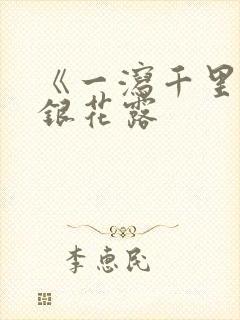 《一瀉千里
銀花露
李惠民